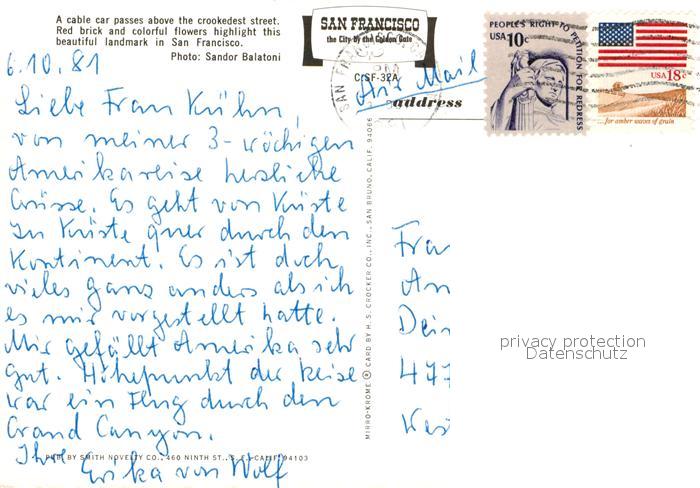 A cable car passes above the crookedest street.
Red brick and colorful flowers highlight this
beautiful landmark in San Francisco.
Photo: Sandor Balatoni
SAN FRANCISCO
the City by the Golden Gate
C-SF-32A
PEOPLE'S RIGHT TO PETITION FOR REDRESS
USA 10c
USA 18c
for amber waves of grain
SAN FRANCISCO
PM
Air Mail
address
6.10.81
Liebe Frau Kühn,
von meiner 3-wöchigen
Amerikareise herzliche
Grüsse. Es geht von Küste
zu Küste quer durch den
Kontinent. Es ist doch
vieles ganz anders als ich
es mir vorgestellt hatte.
Mir gefällt Amerika sehr
gut. Höhepunkt der Reise
war ein Flug durch den
Grand Canyon.
Ihre
Erika von Wolf
PUB. BY SMITH NOVELTY CO., 460 NINTH ST., S. F., CALIF. 94103
MIRRO-KROME ® CARD BY H. S. CROCKER CO., INC., SAN BRUNO, CALIF. 94066
Frau
An
Dein
477
privacy protection
Datenschutz